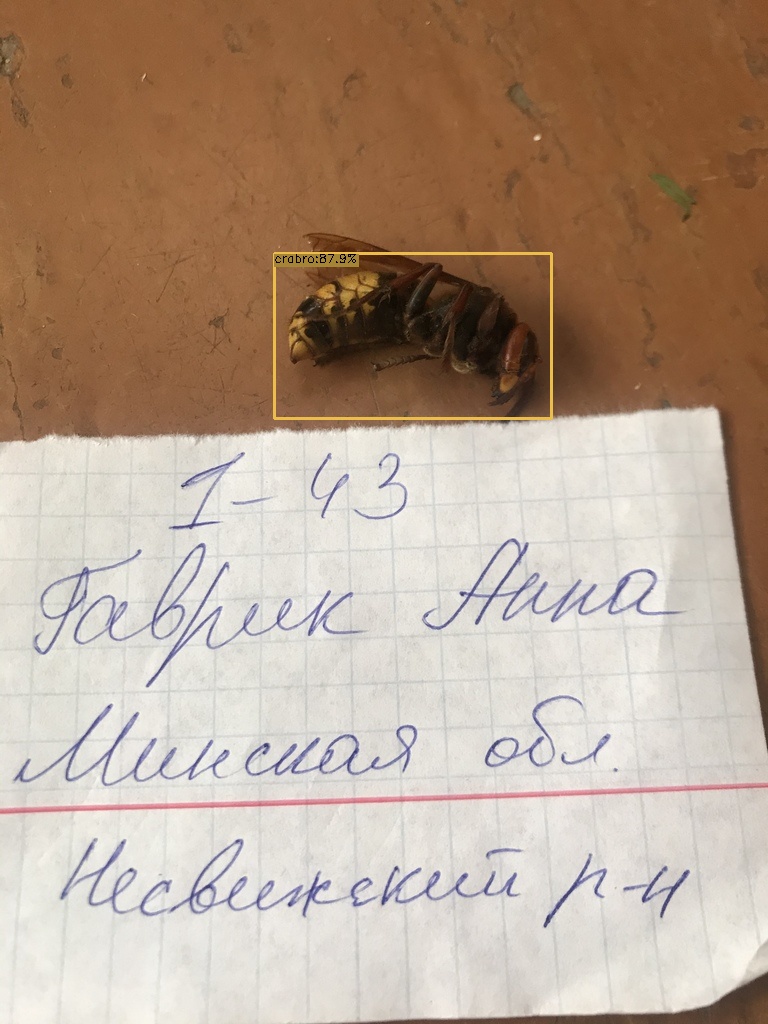 crabro:87.9%
1-43
Гаврик Анна
Минская обл.
Несвижский р-н